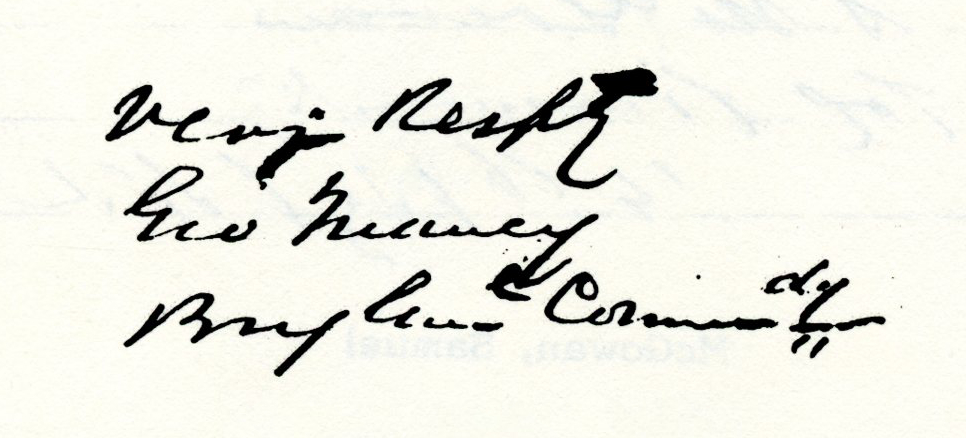 Very Respfy
Geo Maney
Brig Gen C Commdg
McGowan, Samuel